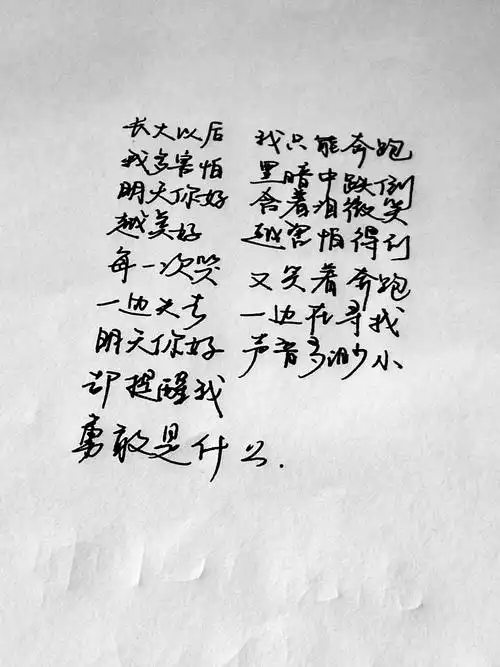 长大以后 我只能奔跑
我多害怕 黑暗中跌倒
明天你好 含着泪微笑
越美好 越害怕得到
每一次哭 又笑着奔跑
一边失去 一边在寻找
明天你好 声音多渺小
却提醒我
勇敢是什么.